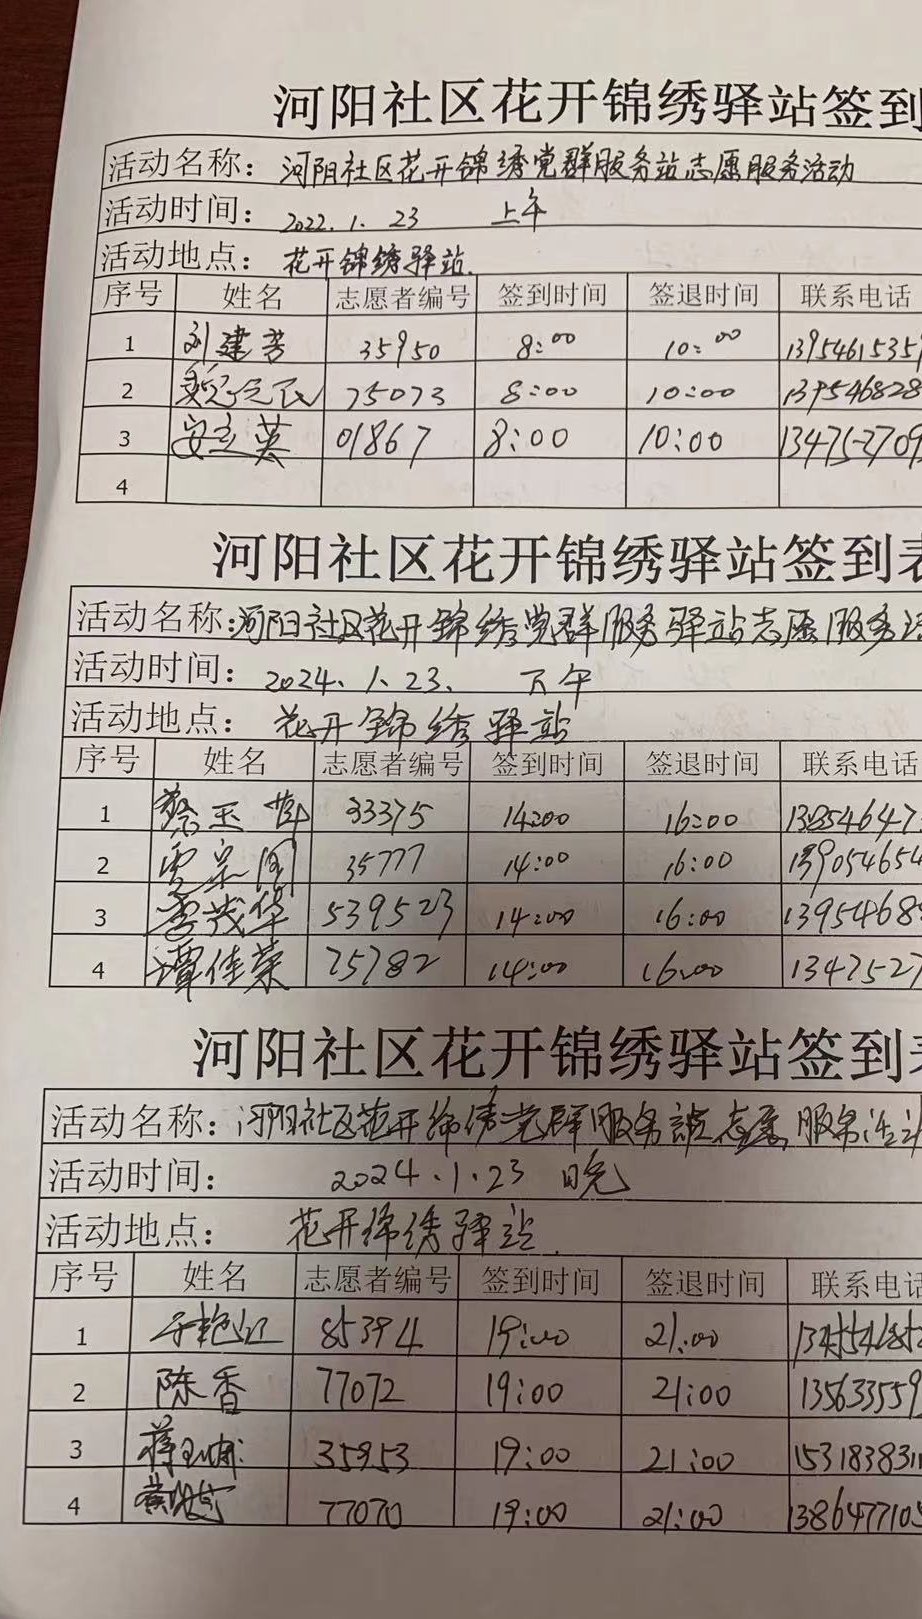 河阳社区花开锦绣驿站签到
活动名称：河阳社区花开锦绣党群服务站志愿服务活动
活动时间：2022.1.23 上午
活动地点：花开锦绣驿站.
序号 姓名 志愿者编号 签到时间 签退时间 联系电话
1 刘建芳 35950 8:00 10:00 1395461535
2 75073 8:00 10:00 139546828
3 安立英 01867 8:00 10:00 134752709
4
河阳社区花开锦绣驿站签到表
活动名称:河阳社区花开锦绣党群服务驿站志愿服务活
活动时间:2024.1.23. 下午
活动地点:花开锦绣驿站
序号 姓名 志愿者编号 签到时间 签退时间 联系电话
1 蔡玉 33375 14:00 16:00
2 贾宗同 35777 14:00 16:00 139054654
3 李茂华 539523 14:00 16:00 13954685
4 谭佳荣 75782 14:00 16:00 1347527
河阳社区花开锦绣驿站签到
活动名称:河阳社区花开锦绣党群服务 志愿服务活动
活动时间: 2024.1.23 晚
活动地点: 花开锦绣驿站.
序号 姓名 志愿者编号 签到时间 签退时间 联系电话
1 于艳红 85394 19:00 21:00
2 陈香 77072 19:00 21:00 135633559
3 35953 19:00 21:00 1531838311
4 77070 19:00 21:00 1386477105